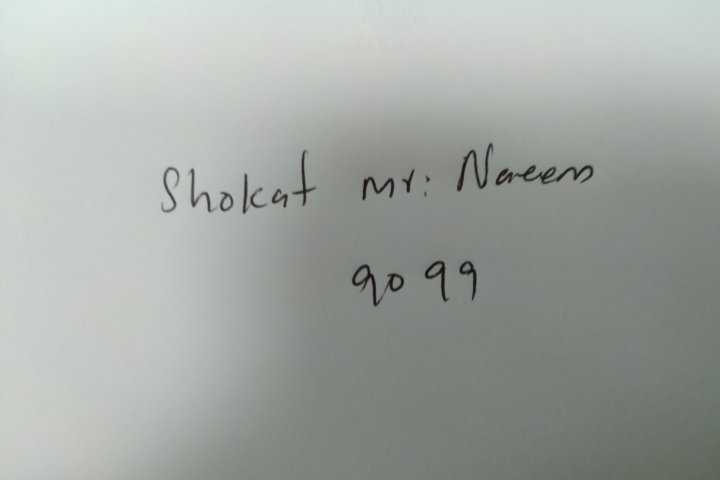 Shokat mr: Naeem
9099